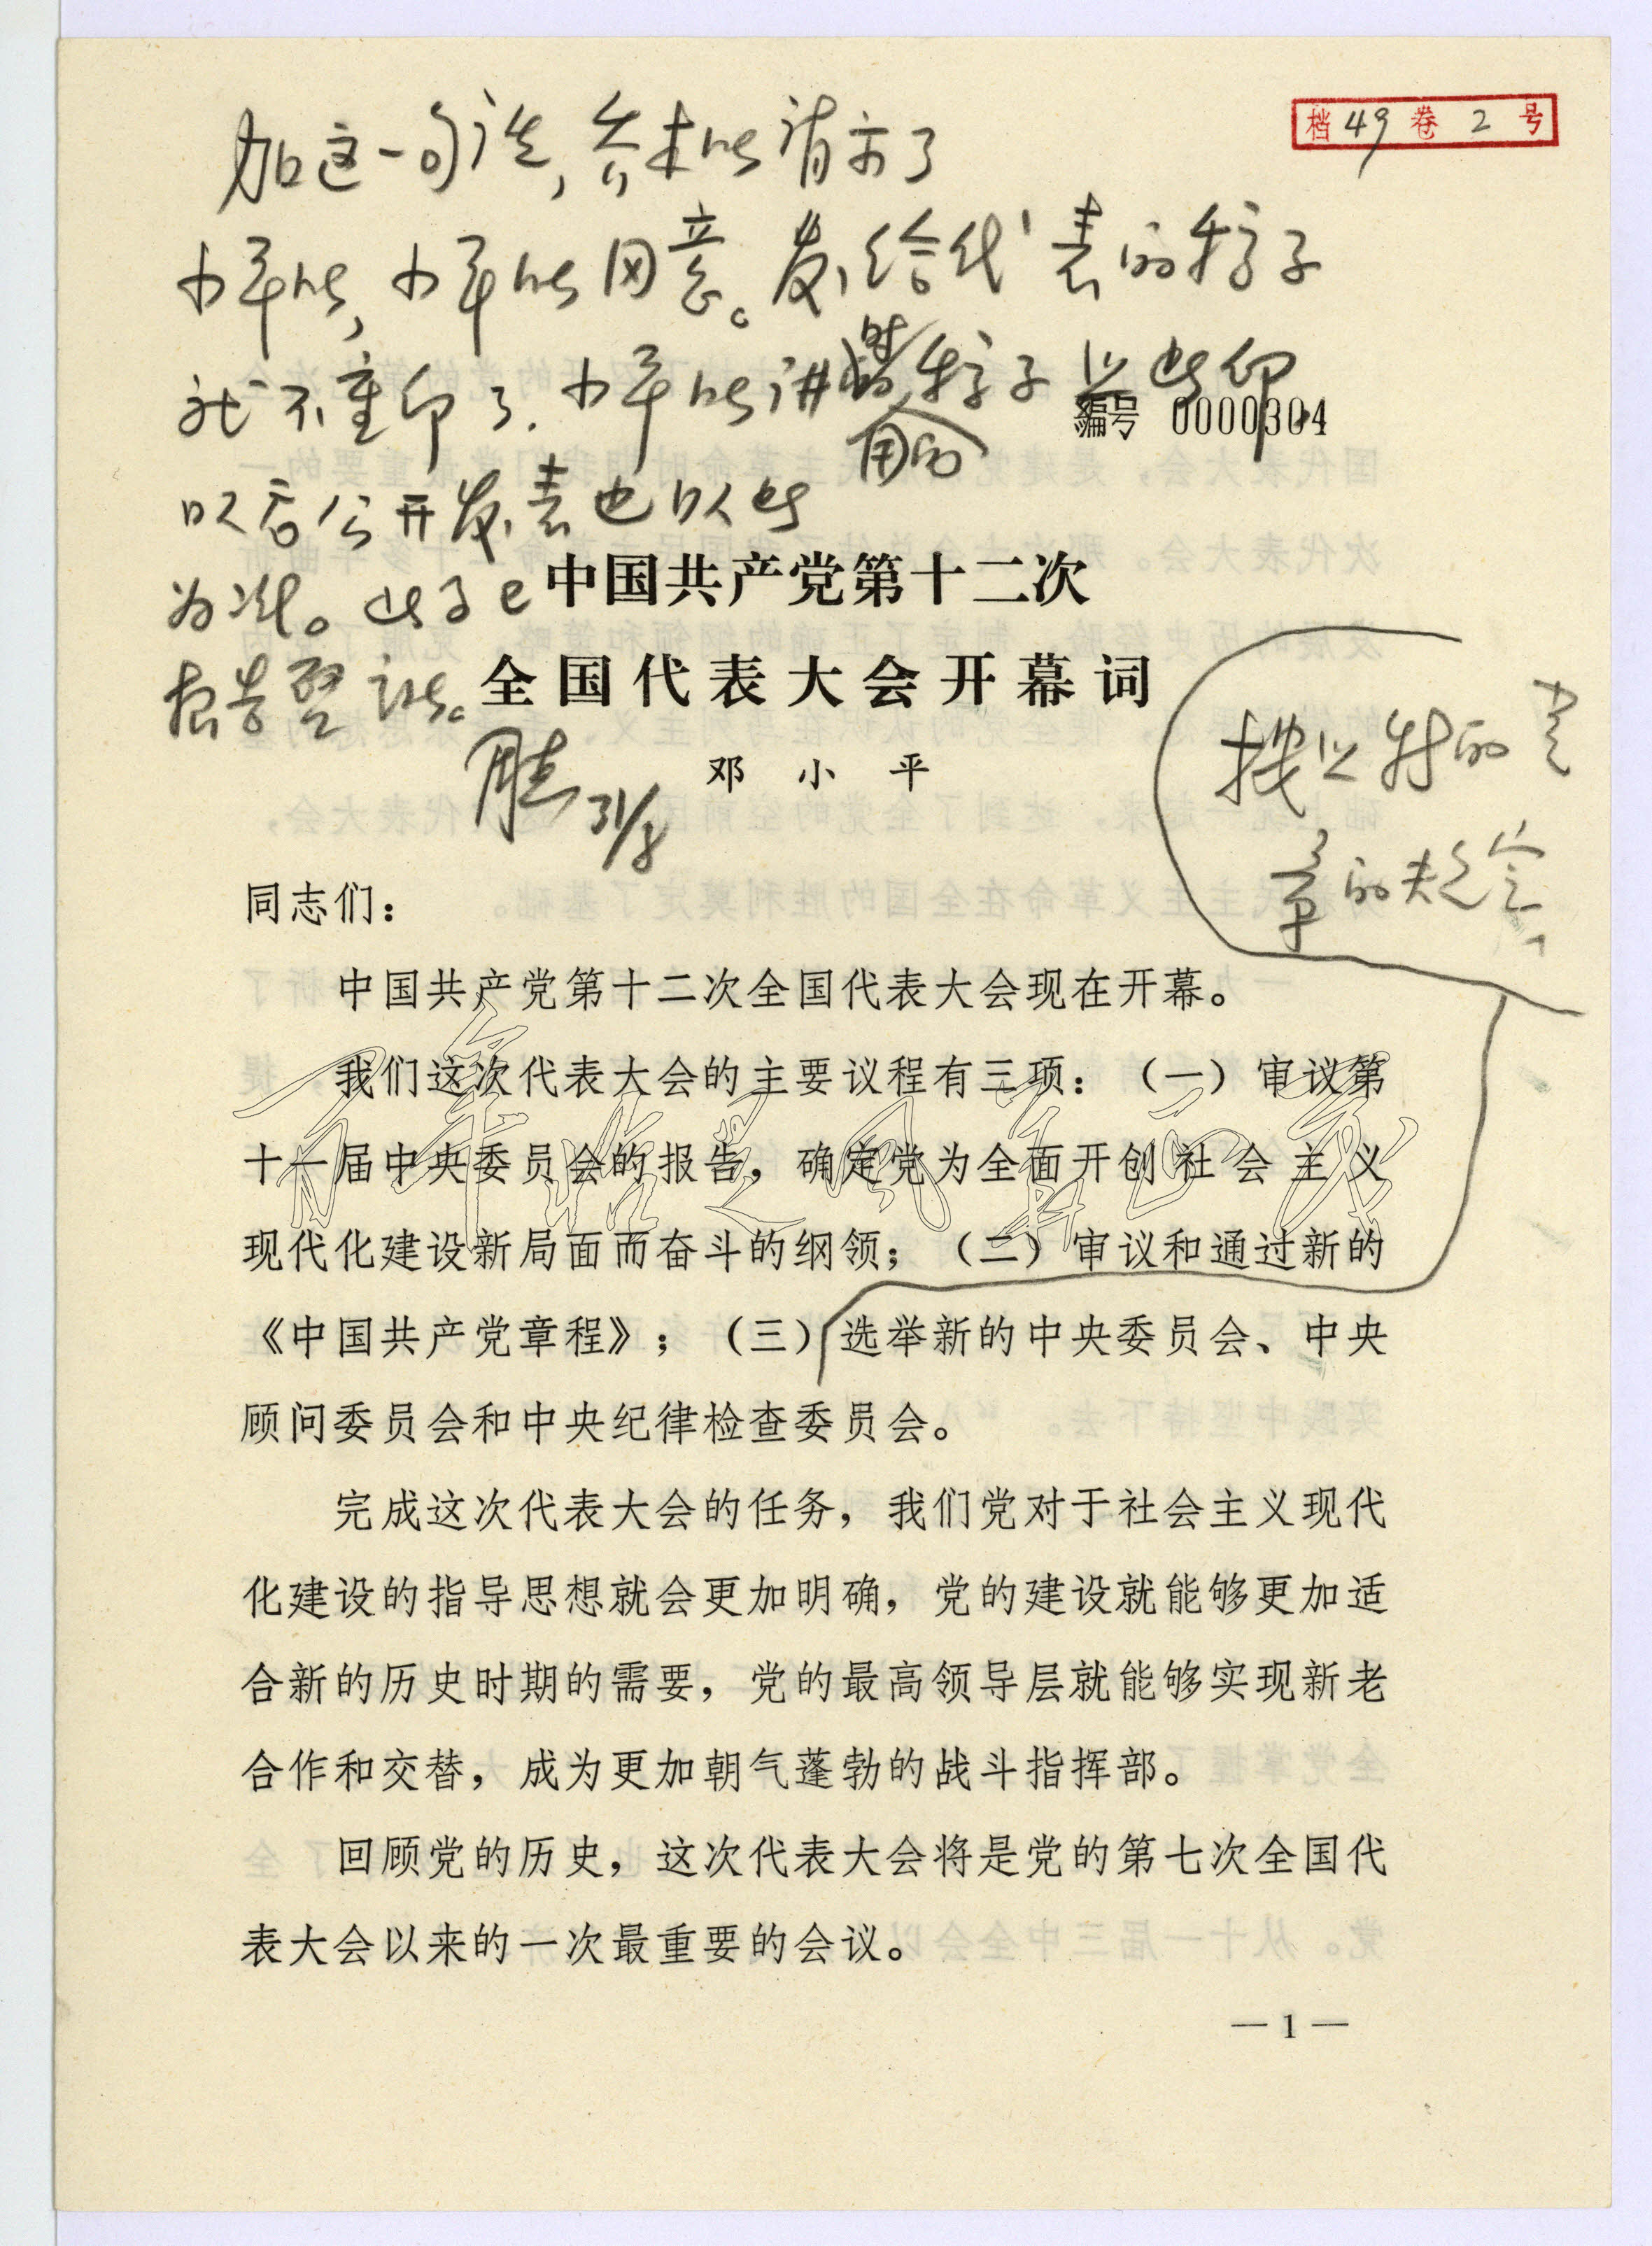 档 49 卷 2 号
加这一句话,乔木同志请示了
小平同志,小平同志同意。发给代表的稿子
就不重印了.小平同志讲稿子照此印
用的
编号 0000304
以后公开发表也以此
为准。此事已
报告 同志。
中国共产党第十二次
全国代表大会开幕词
31/8
邓 小 平
按照新的党
章的规定,
同志们:
中国共产党第十二次全国代表大会现在开幕。
我们这次代表大会的主要议程有三项:(一)审议第
十一届中央委员会的报告,确定党为全面开创社会主义
现代化建设新局面而奋斗的纲领;(二)审议和通过新的
《中国共产党章程》;(三)选举新的中央委员会、中央
顾问委员会和中央纪律检查委员会。
完成这次代表大会的任务,我们党对于社会主义现代
化建设的指导思想就会更加明确,党的建设就能够更加适
合新的历史时期的需要,党的最高领导层就能够实现新老
合作和交替,成为更加朝气蓬勃的战斗指挥部。
回顾党的历史,这次代表大会将是党的第七次全国代
表大会以来的一次最重要的会议。
— 1 —